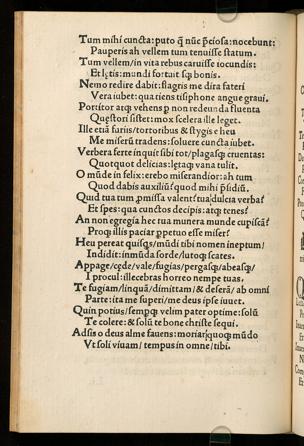 Tum mihi cuncta: puto q̃ nūc p̃ciosa: nocebunt:
Pauperis ah vellem tum tenuisse statum.
Tum vellem/in vita rebus caruisse iocundis:
Et lętis: mundi fortuitisq̧ bonis.
Nemo redire dabit: flagris me dira fateri
Vera iubet: qua tiens tisiphone angue gravi.
Portitor atq̧ vehens p̱ non redeunda fluenta
Quęstori sistet: mox scelera ille leget.
Ille etiā furiis/tortoribus & stygis e heu
Me miserū tradens: soluere cuncta iubet.
Verbera ferre inquit tibi tot/plagasq̧ cruentas:
Quotquot delicias: lętaq̧ vana tulit.
O mūde in felix: erebo miserandior: ah tum
Quod dabis auxiliū? quod mihi p̃sidiū.
Quid tua tum p̱missa valent? tua dulcia verba?
Et spes: qua cunctos decipis: atq̧ tenes?
An non egregia hec tua munera munde cupiscā?
Proq̧ illis paciar p̱petuo esse miser?
Heu pereat quisq̧s/mūdi tibi nomen ineptum/
Indidit: inmūda sorde/lutoq̧ scates.
Appage/cęde/vale/fugias/pergasq̧/abeasq̧/
I procul: illecebras horreo nempe tuas.
Te fugiam/linquā/dimittam/& deserā/ab omni
Parte: ita me superi/me deus ipse iuuet.
Quin potius/sempq̧ velim pater optime: solū
Te colere: & solū te bone christe sequi.
Adsis o deus alme fauens: moriarq̧: quoq̧ mūdo
Vt soli viuam/tempus in omne/tibi.